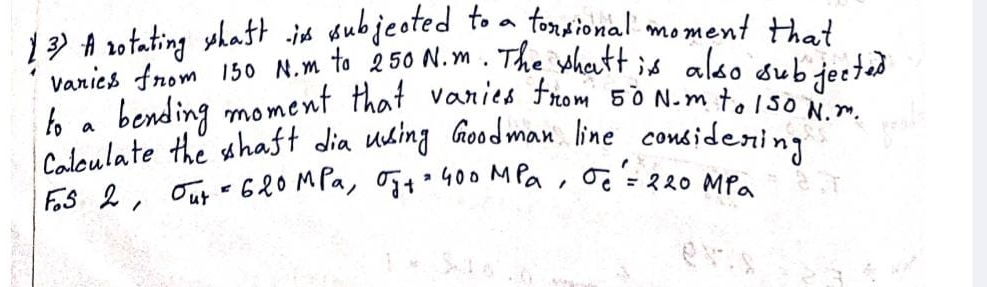 13) A rotating shaft is subjected to a torsional moment that
varies from 150 N.m to 250 N.m. The shaft is also subjected
to a bending moment that varies from 50 N-m to 150 N.m.
Calculate the shaft dia using Goodman line considering
FoS 2, σut = 620 MPa, σyt = 400 MPa, σe' = 220 MPa